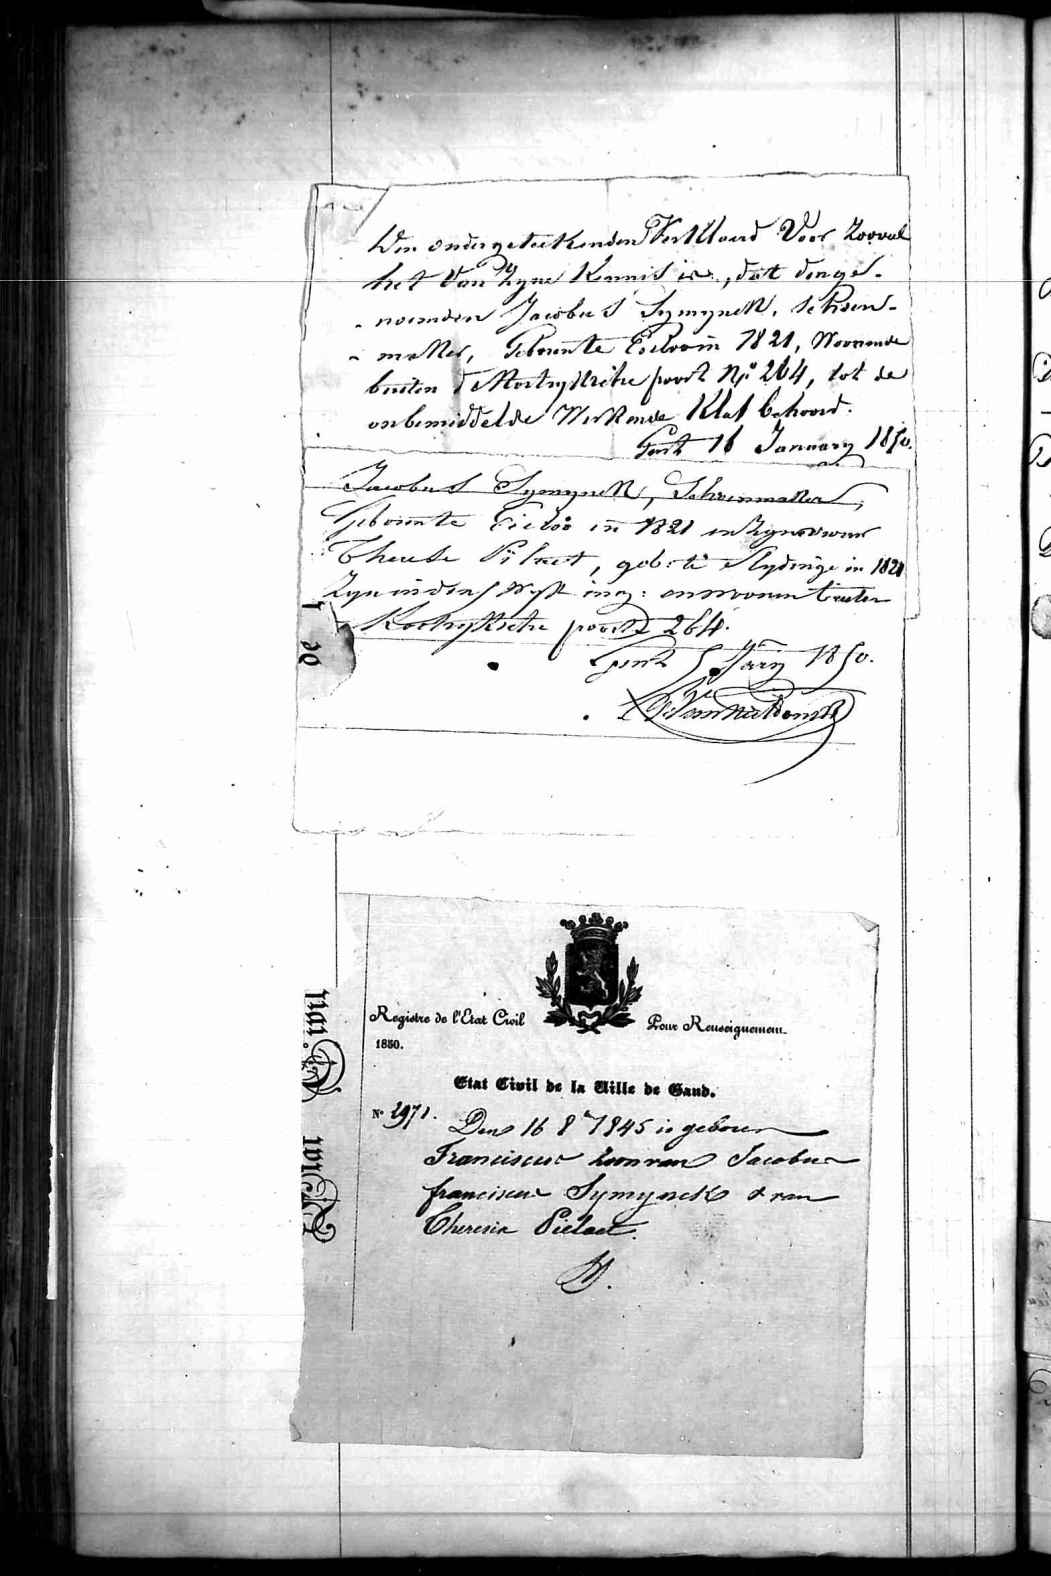 Den ondergeteekenden Verklaerd Voor Zooveel
het Van Zyne Kennis is, dat dengel-
noemden Jacobus Symynck, Schoen-
maker, Geboortte Eecloo in 1821, Woonende
buiten d' Kortrykssche poort No 264, tot de
onbemiddelde Werkende Klas behoord.
Gent 16 January 1850.
Jacobus Symynck, Schoenmaker,
Geboortte Eecloo in 1821 en Zyne vrouw
Therese Pilaet, geb: te Slydinge in 1821
Zyn in den wyk ing: en woonen buiten
Kortryksche poorte 264.
Gent 5 Jary 1850.
de
Registre de l'Etat Civil
Pour Renseignement.
1850.
Etat Civil de la Ville de Gand.
No 2971.
Den 16 8r 1845 is geboren
Franciscus zoon van Jacobus
franciscus Symynck & van
Theresia Pielaet.